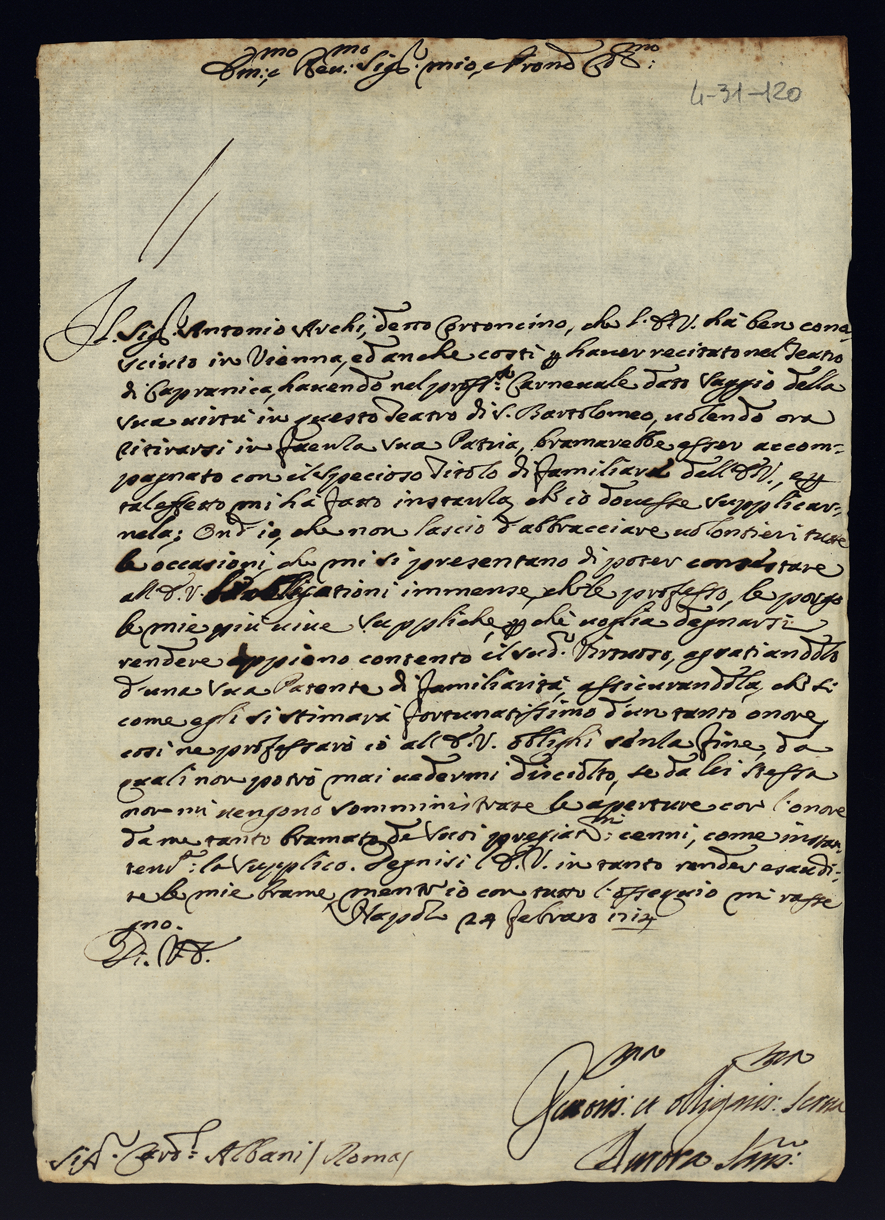 Em:mo e Reu:mo Sig:r mio, e Pron Col:mo
4-31-120
Il Sig:r Antonio Archi, detto Cortoncino, che l'E.V. hà ben cono,
sciuto in Vienna, ed anche costì p hauer recitato nel Teatro
di Capranica, hauendo nel pross:o Carneuale dato saggio della
sua uirtù in questo Teatro di S. Bartolomeo, uolendo ora
ritirarsi in Faenza sua Patria, bramarebbe esser accom-
pagnato con il specioso Titolo di familiare dell'E.V., e p
tal effetto mi hà fatto instanza, ch'io douesse supplicar-
nela; Ond'io, che non lascio d'abbracciare uolontieri tutte
le occasioni, che mi si presentano di poter contestare
all'E.V. l'obligationi immense, che le professo, le porgo
le mie più uiue suppliche, p che uoglia degnarsi
rendere appieno contento il sud:o Virtuoso, agratiandolo
d'una sua Patente di familiarità, assicurandola, che si
come egli si stimarà fortunatissimo d'un tanto onore,
così ne professarò io all'E.V. oblighi senza fine, da
quali non potrò mai uedermi disciolto, se da lei stessa
non mi uengono somministrate le aperture con l'onore
da me tanto bramato de suoi pregiat:mi cenni, come instan,
tem:te la supplico. Degnisi l'E.V. in tanto render esaudi-
te le mie brame, mentr'io con tutto l'ossequio mi rasse
gno. Napoli 24 febraro 1714
Di V.E.
Deuotis:ma et oblignis:ma Serua
Aurora San:
Sig:r Card:l Albani / Roma /